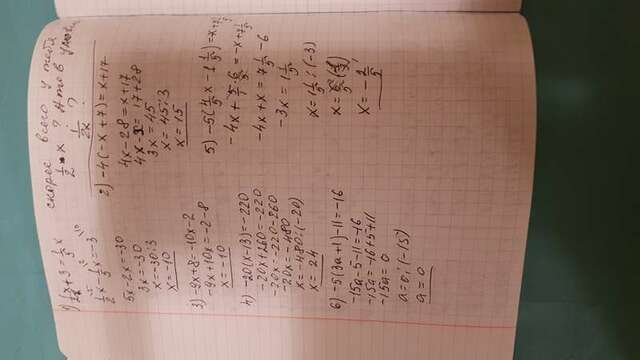 скорее всего у тебя
1/2 · x ? А то в услов
1/2x ?
1) 1/2x + 3 = 1/5x
1/2x - 1/5x = -3
5x - 2x = -30
3x = -30
x = -30:3
x = -10
2) -4(-x + 7) = x + 17
4x - 28 = x + 17
4x - x = 17 + 28
3x = 45
x = 45:3
x = 15
3) -9x + 8 = -10x - 2
-9x + 10x = -2 - 8
x = -10
4) -20(x - 13) = -220
-20x + 260 = -220
-20x = -220 - 260
-20x = -480
x = -480:(-20)
x = 24
5) -5(4/5x - 1 1/5) = -x + 7 1/5
-4x + 5/1 · 6/5 = -x + 7 1/5
-4x + x = 7 1/5 - 6
-3x = 1 1/5
x = 1 1/5 : (-3)
x = 6/5 · (-1/3)
x = -2/5
6) -5(3a + 1) - 11 = -16
-15a - 5 - 11 = -16
-15a = -16 + 5 + 11
-15a = 0
a = 0:(-15)
a = 0